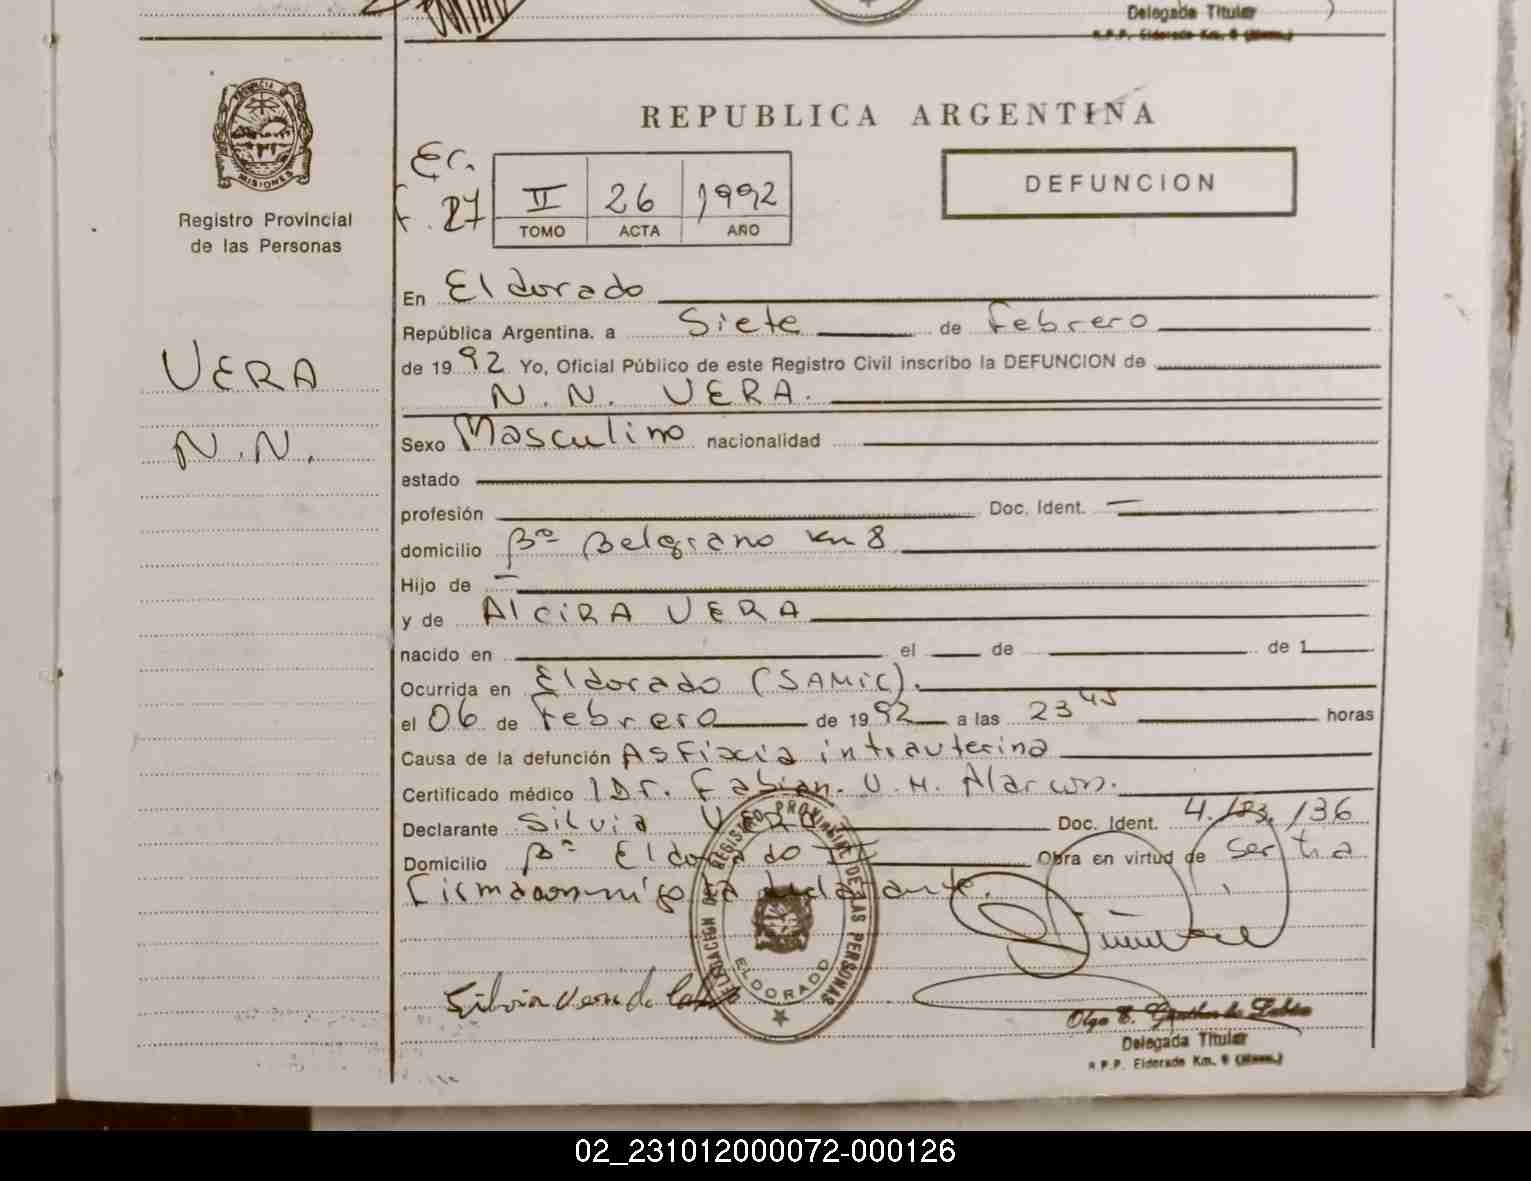 Delegada Titular
R.P.P. Eldorado Km. 9 (Mnes.)
PROVINCIA DE
MISIONES
Registro Provincial
de las Personas
VERA
N.N.
REPUBLICA ARGENTINA
Er.
F. 27
II 26 1992
TOMO ACTA AÑO
DEFUNCION
En Eldorado
República Argentina, a Siete de Febrero
de 1992 Yo, Oficial Público de este Registro Civil inscribo la DEFUNCION de
N. N. VERA.
Sexo Masculino nacionalidad
estado
profesión Doc. Ident. —
domicilio Bº Belgrano Km 8
Hijo de —
y de ALCIRA VERA
nacido en el de de 1
Ocurrida en Eldorado (SAMIC).
el 06 de Febrero de 1992 a las 23 45 horas
Causa de la defunción Asfixia intrauterina
Certificado médico 1 Dr. Fabian. U. H. Alarcon.
Declarante Silvia VERA Doc. Ident. 4. 136
Domicilio Bº Eldorado II Obra en virtud de ser tia
Firma conmigo la declarante.
DELEGACION DEL REGISTRO PROVINCIAL DE LAS PERSONAS
ELDORADO
Silvia Vera de
Olga E.
Delegada Titular
R.P.P. Eldorado Km. 9 (Mnes.)
02_231012000072-000126